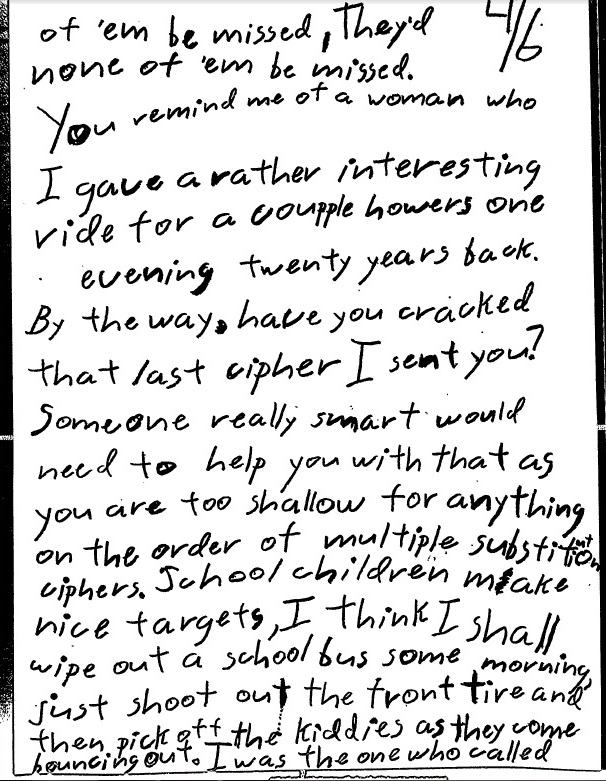 of 'em be missed, They'd 4/6
none of 'em be missed.
You remind me of a woman who
I gave a rather interesting
ride for a coupple howers one
evening twenty years back.
By the way, have you cracked
that last cipher I sent you?
Someone really smart would
need to help you with that as
you are too shallow for anything
on the order of multiple substitution
ciphers. School children make
nice targets, I think I shall
wipe out a school bus some morning,
just shoot out the front tire and
then pick off the kiddies as they come
bouncing out. I was the one who called